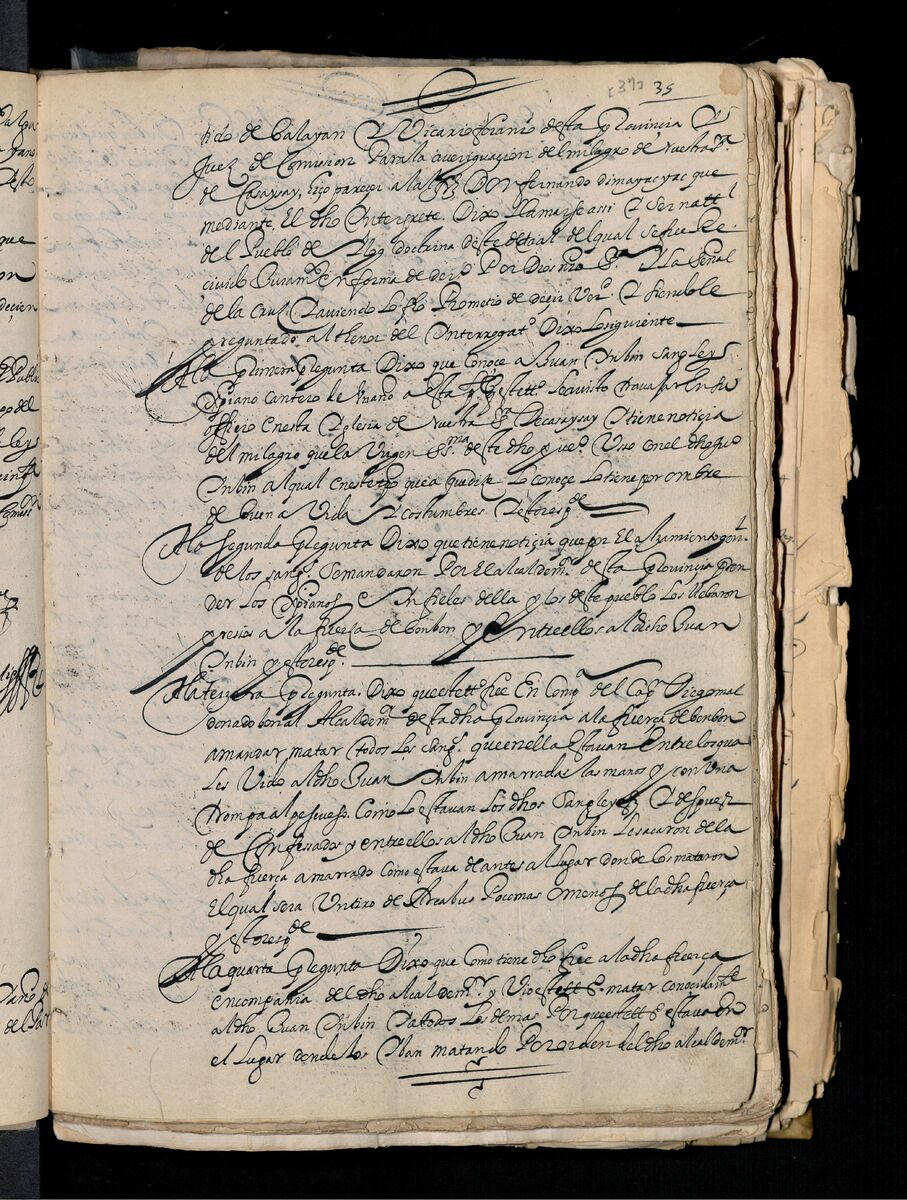 [37] 35
tido de balayan y Vicario foraneo desta provincia y
Juez de Comision Para la averiguacion del milagro de nuestra sra
de Casaysay, hiço pareçer a la qual Don fernando dimayacyac que
mediante El dho Interprete Dixo llamarse assi y ser natl
del Pueblo de doctrina deste del qual se fue Re
civido Juramto en forma de dero Por Dios nro sr y la señal
de la Cruz y aviendo lo fho Prometio de deçir Ver. y siendole
preguntado al thenor del Interrogato Dixo lo siguiente
A la primera pregunta Dixo que conoce a Juan Inbin Sangley
Xpiano cantero de mano a esta pte y este tto le a visto travajar en su
offiçio en esta Iglesia de Nuestra Sra De casaysay y tiene notiçia
del milagro que la Virgen SSma deste dho pueo Uso con el dho Juo
Inbin al qual en este tpo que a que dize lo conoce lo tiene por ombre
de buena Vida y costumbres y esto respde
A la segunda pregunta Dixo que tiene notiçia que por El alzamiento genl
de los sangs se mandaron Por El alcaldemr desta provincia pren
der los Xpianos e Infieles della y los deste pueblo los llebaron
presos a la fuerça de bonbon y Entre ellos al dicho Juan
Inbin y esto respde
A la terzera pregunta Dixo que este tto fue En Compa del Capn Diego mal
donado bonal Alcaldemr desta dha provincia a la fuerça de bonbon
a mandar matar todos los sangs que en ella Estavan Entre los qua
les Vido al dho Juan Inbin amarrada las manos y con Una
trompa al pescueso Como lo estavan los dhos Sangleyes y despues
de Confesados y entre ellos al dho Juan Inbin le sacaron de la
dha fuerça amarrado como estava de antes al lugar donde los mataron
El qual sera Un tiro de Arcabus Poco mas o menos de la dha fuerça
y esto respde
A la quarta pregunta Dixo que como tiene dho fue a la dha fuerça
en compañia del dho alcaldemr y Vio este tto matar conocidamte
al dho Juan Inbin y a todos los demas Porque este tto estava En
el lugar donde los yban matando Por orden del dho alcaldemr